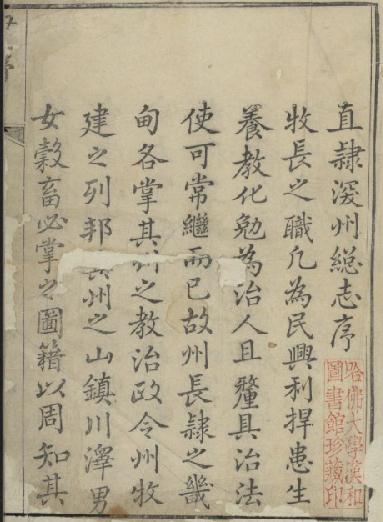 直隸深州總志序
牧長之職凡為民興利捍患生
養教化勉為治人且釐具治法
使可常繼而已故州長隸之畿
甸各掌其州之教治政令州牧
建之列邦州之山鎮川澤男
女穀畜必掌之圖籍以周知其
哈佛大學漢和
圖書館珍藏印